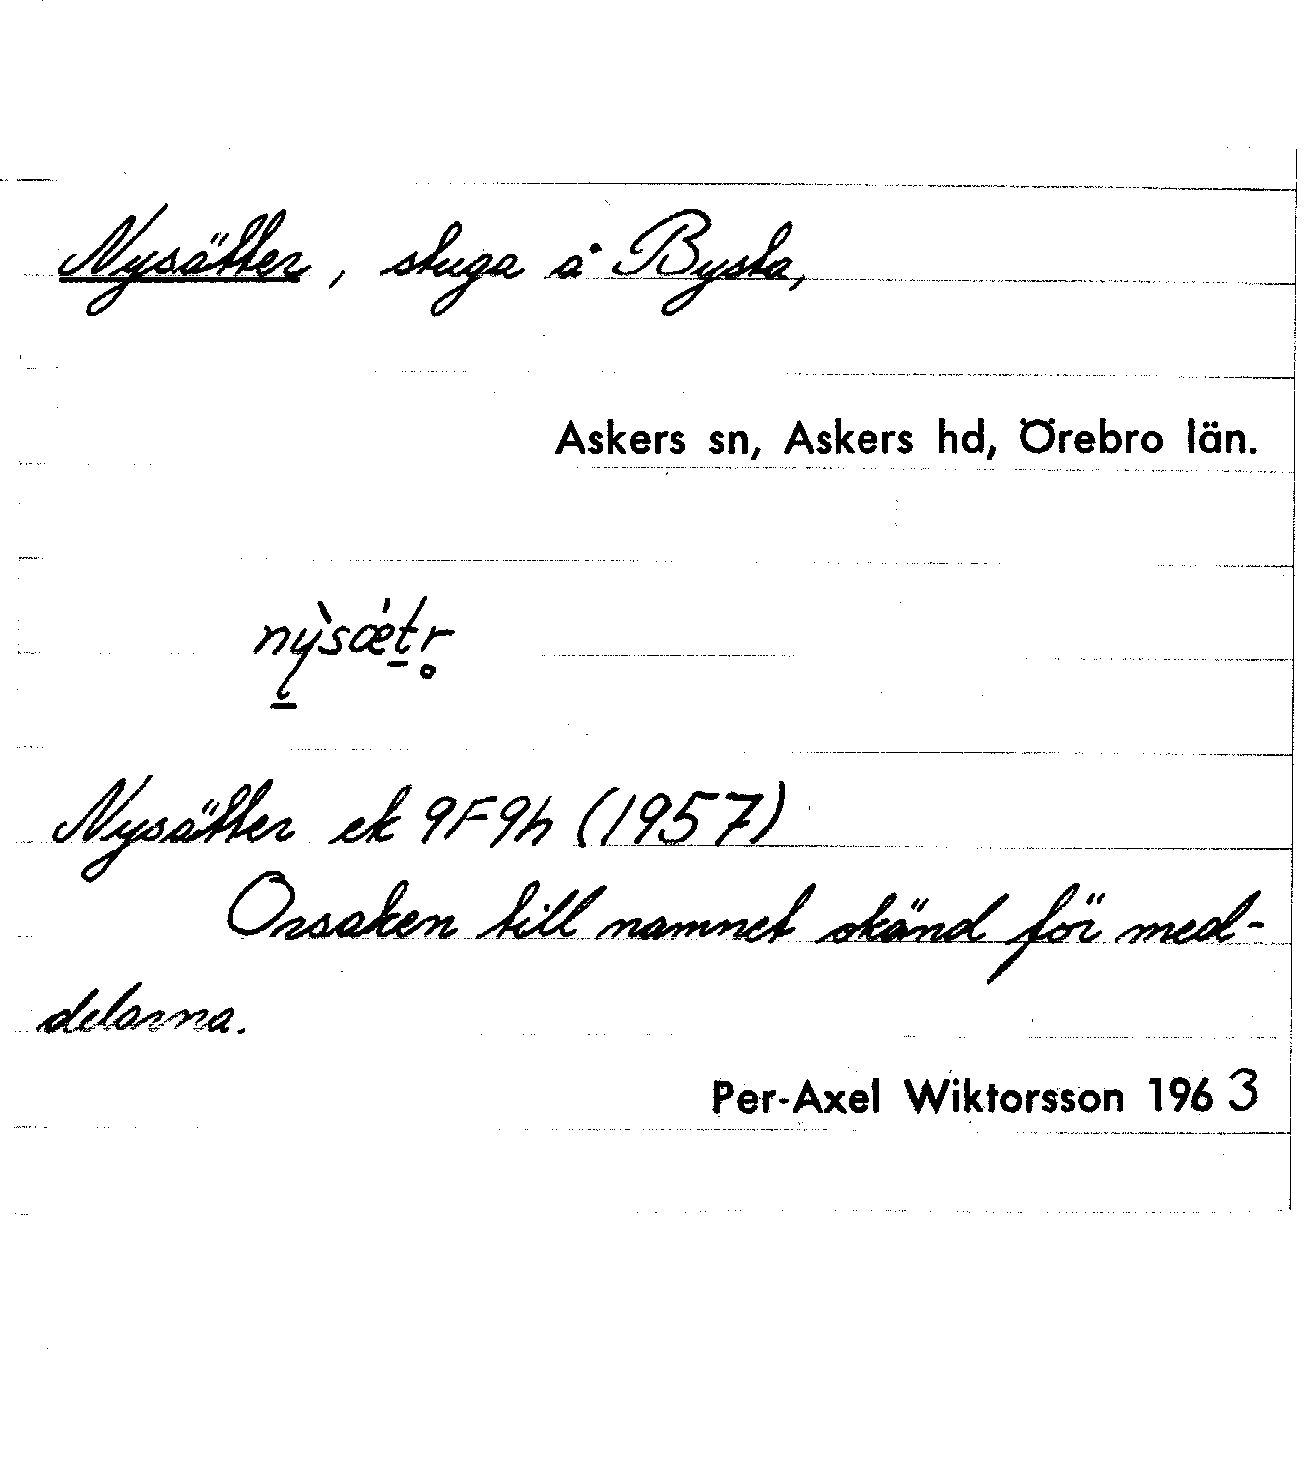 Nysätter, stuga å Bysta,
Askers sn, Askers hd, Örebro län.
nỳ̱sǽṯr̥
Nysätter ek 9F9h (1957)
Orsaken till namnet okänd för med-
delarna.
Per-Axel Wiktorsson 1963